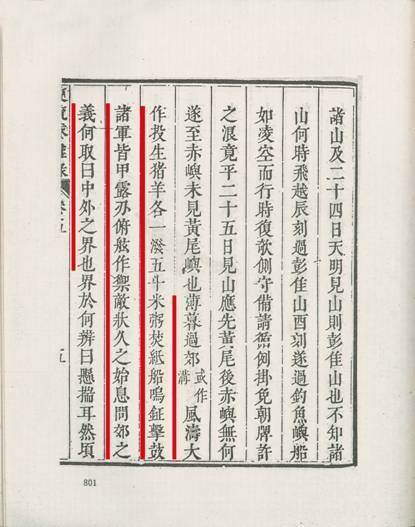 諸山及二十四日天明見山則彭佳山也不知諸
山何時飛越辰刻過彭佳山酉刻遂過釣魚嶼船
如凌空而行時復欹側守備請例掛免朝牌許
之浪竟平二十五日見山應先黃尾後赤嶼無何
遂至赤嶼未見黃尾嶼也薄暮過郊或作溝風濤大
作投生猪羊各一潑五斗米粥焚紙船鳴鉦擊鼓
諸軍皆甲露刃俯舷作禦敵狀久之始息問郊之
義何取曰中外之界也界於何辨曰懸揣耳然頃
卷五
五
801